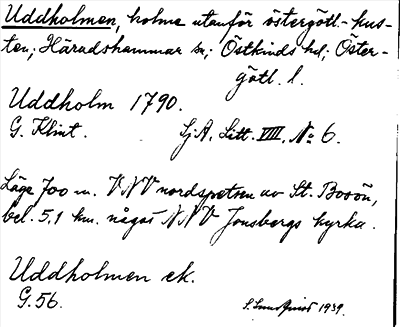 Uddholmen, holme utanför östergötl.-kus-
ten; Häradshammar sn; Östkinds hd; Öster-
götl. l.
Uddholm 1790.
G. Klint. Sj.A. Litt. VIII, No 6.
Läge 700 m. VNV nordspetsen av St. Bosön,
bel. 5.1 km. något NNV Jonsbergs kyrka.
Uddholmen ek.
G. 56. 1939.